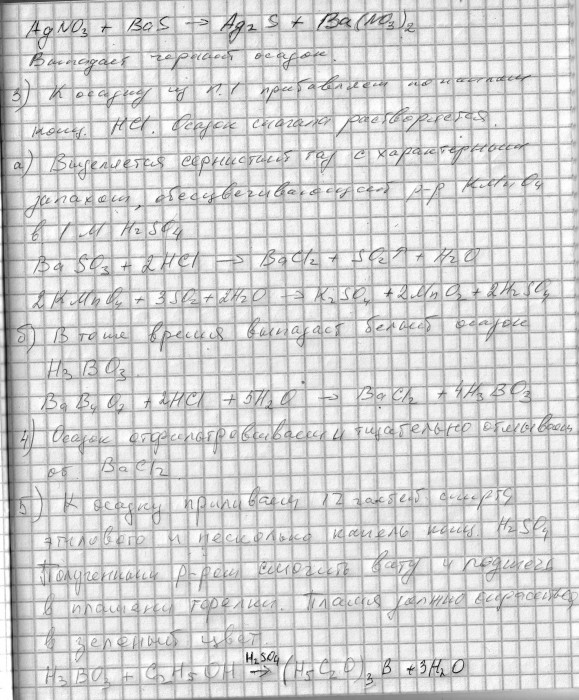 AgNO3 + BaS → Ag2S + Ba(NO3)2
Выпадает черный осадок.
3) К осадку из п.1 прибавляем по каплям
конц. HCl. Осадок сначала растворяется.
а) Выделяется сернистый газ с характерным
запахом, обесцвечивающий р-р KMnO4
в 1 M H2SO4
BaSO3 + 2HCl → BaCl2 + SO2↑ + H2O
2KMnO4 + 3SO2 + 2H2O → K2SO4 + 2MnO2 + 2H2SO4
б) В тоже время выпадает белый осадок
H3BO3.
BaB4O7 + 2HCl + 5H2O → BaCl2 + 4H3BO3
4) Осадок отфильтровываем и тщательно отмываем
от BaCl2.
5) К осадку приливаем 12 частей спирта
этилового и несколько капель конц. H2SO4
Полученным р-ром смочить вату и поджечь
в пламени горелки. Пламя должно окраситься
в зеленый цвет.
H3BO3 + C2H5OH →(H2SO4) (H5C2O)3B + 3H2O